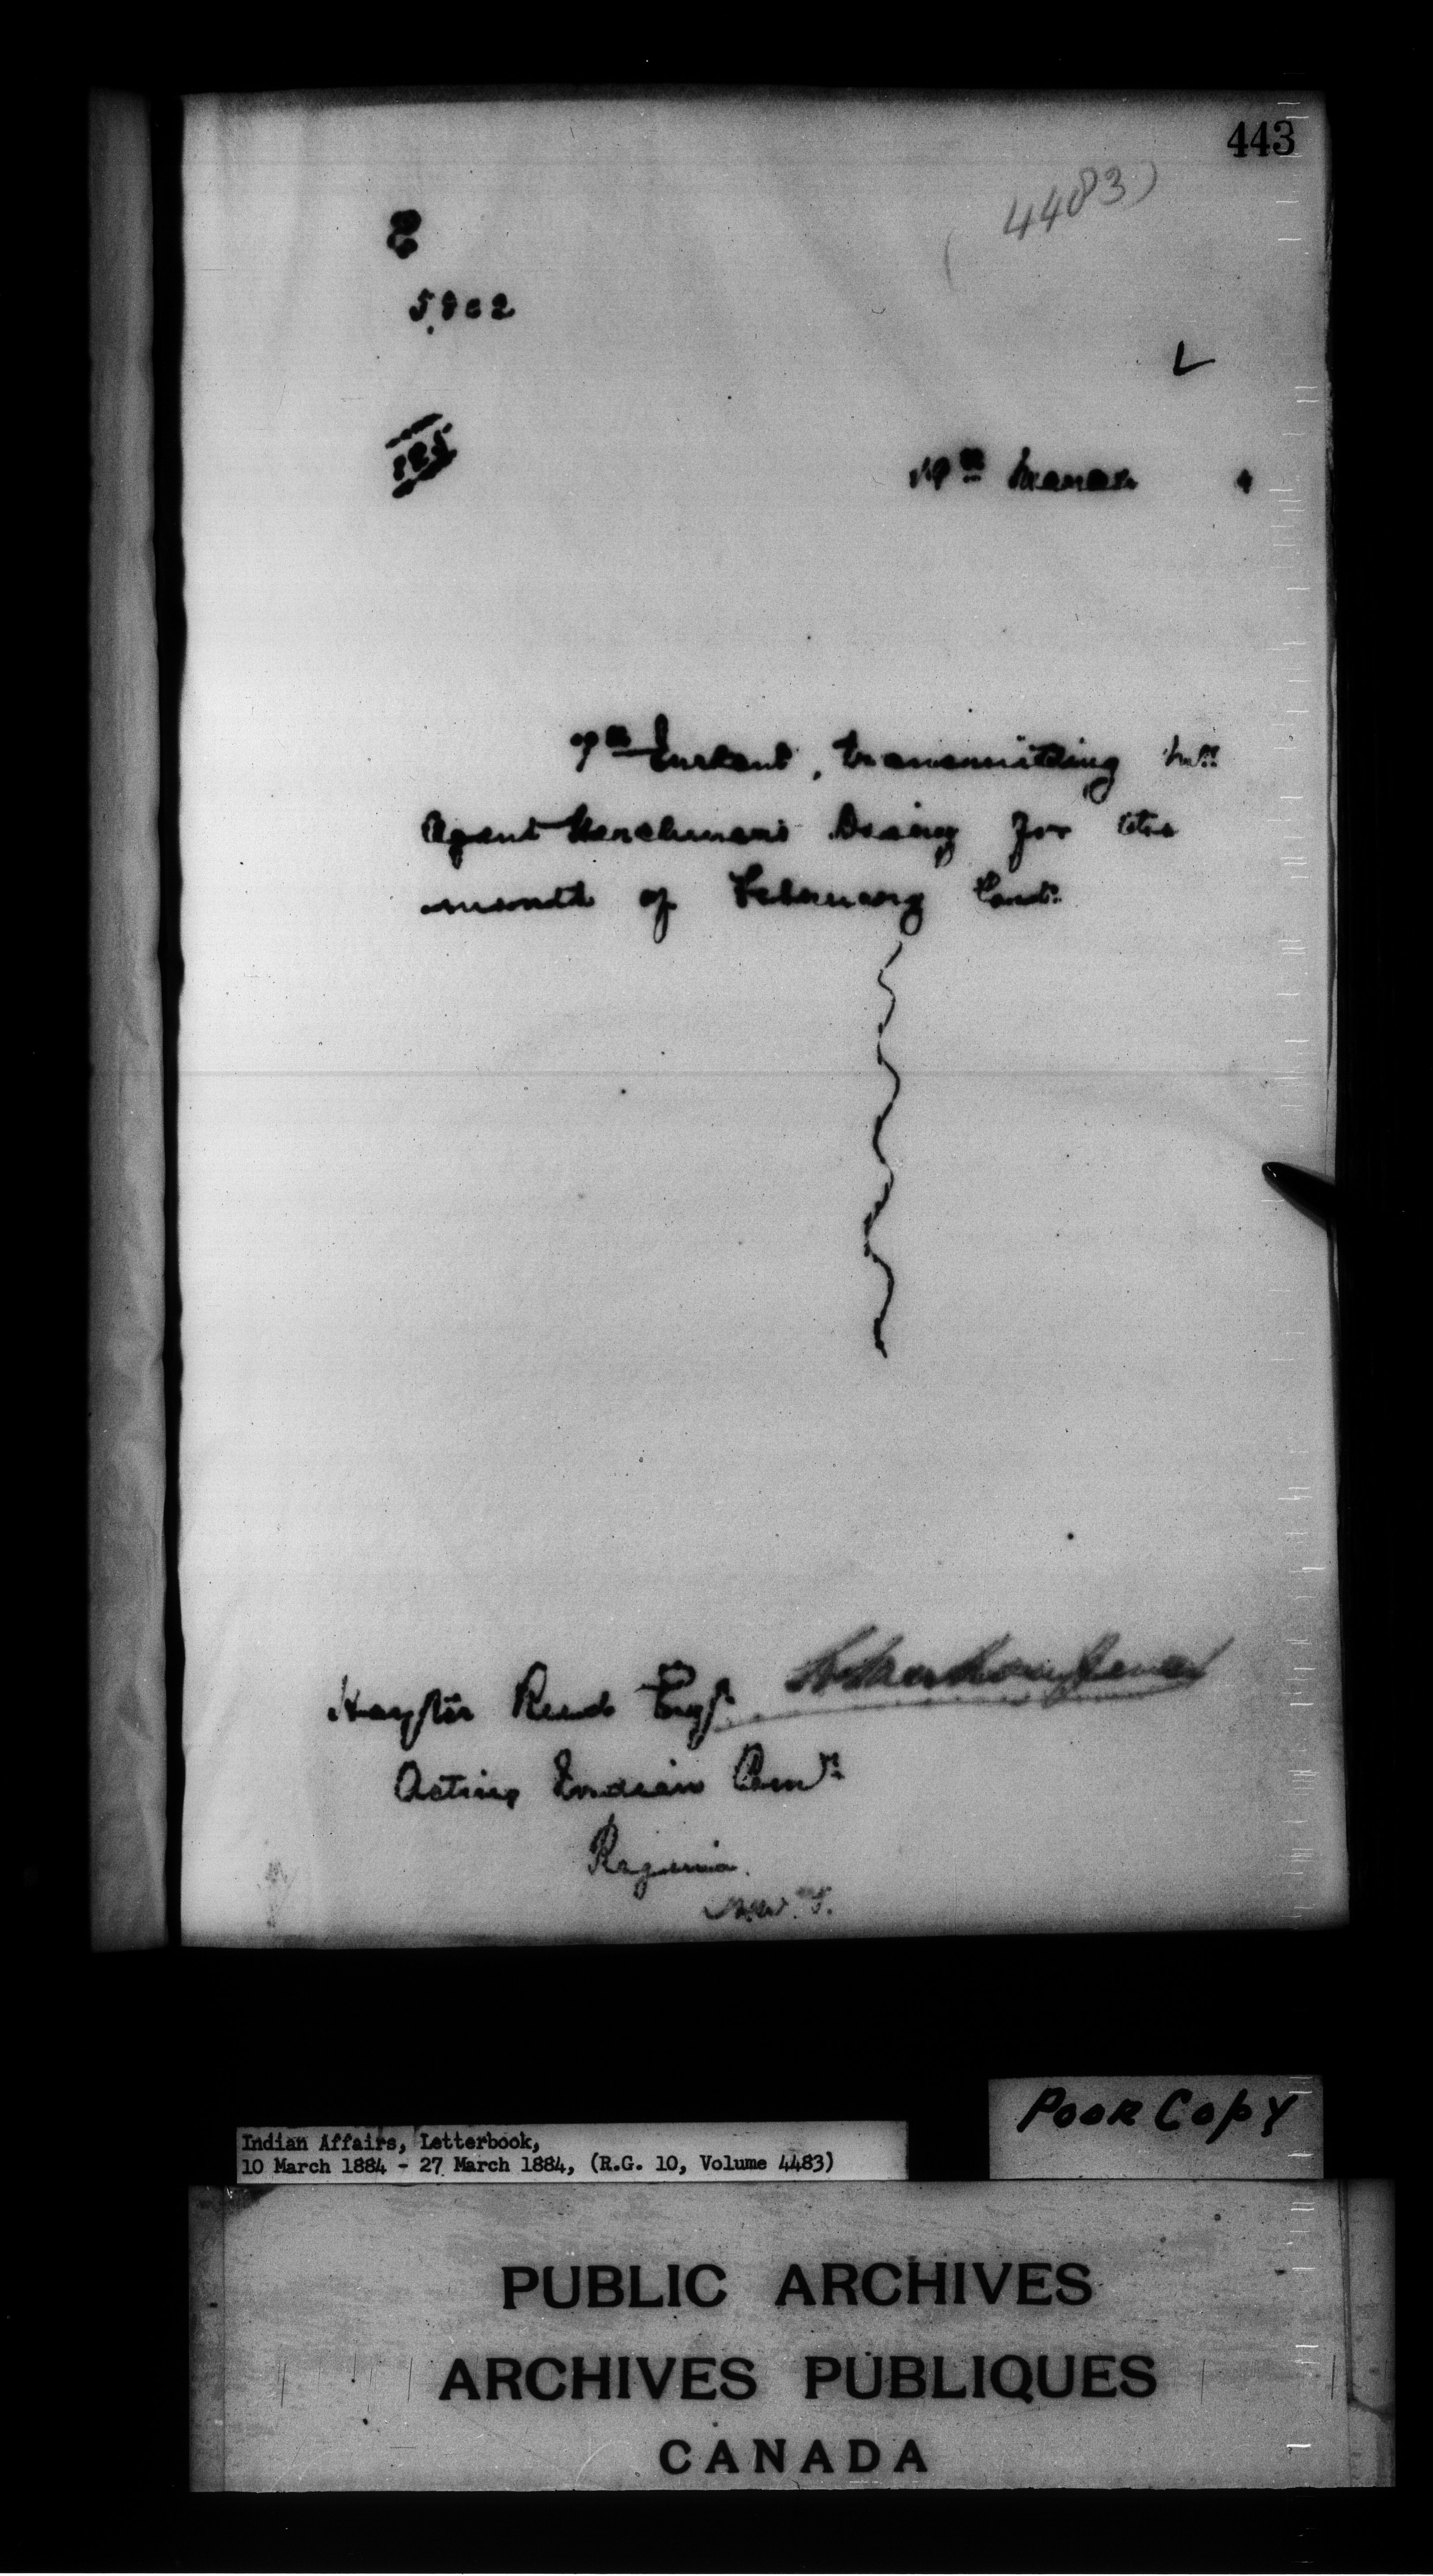 443
4483)
5802
125
19th March 4
7th Instant, transmitting
Agent Diary for the
month of February
Hayter Reed Esq
Acting Indian Comr
Regina.
N.W.T.
Indian Affairs, Letterbook,
10 March 1884 - 27 March 1884, (R.G. 10, Volume 4483)
POOR COPY
PUBLIC ARCHIVES
ARCHIVES PUBLIQUES
CANADA